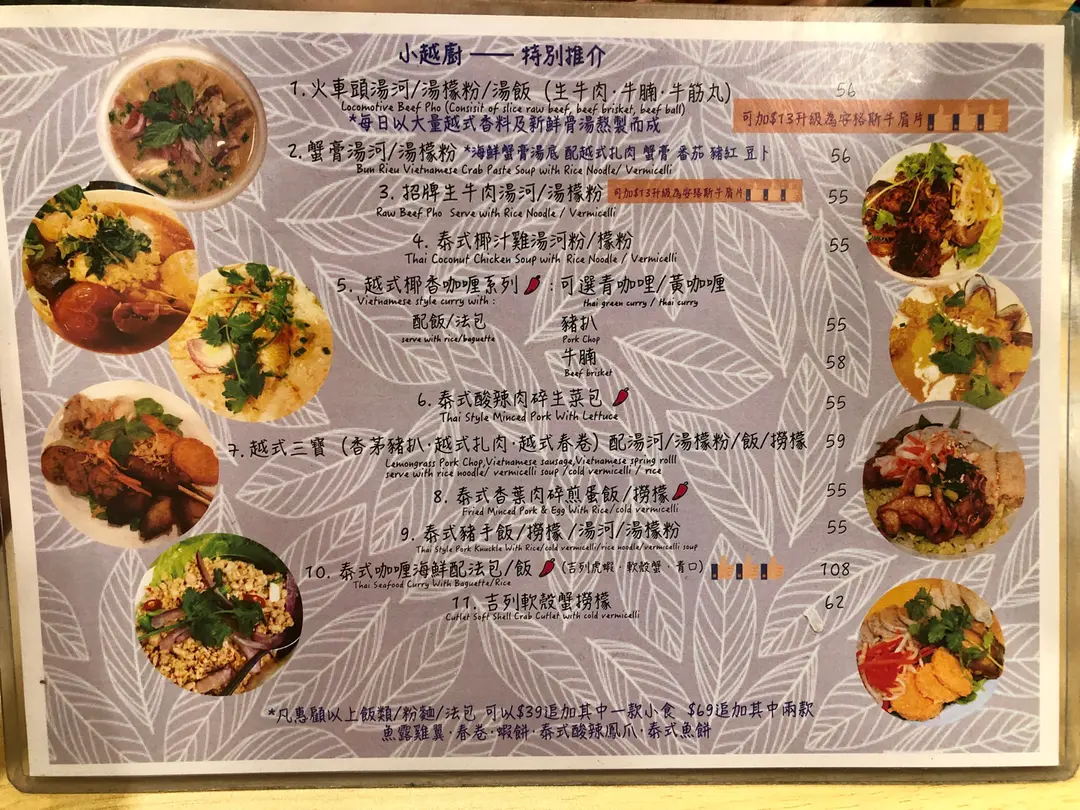 小越廚 —— 特別推介
1. 火車頭湯河/湯檬粉/湯飯 (生牛肉·牛腩·牛筋丸) 56
Locomotive Beef Pho (Consisit of slice raw beef, beef brisket, beef ball)
*每日以大量越式香料及新鮮骨湯熬製而成
可加$13升級為安格斯牛肩片
2. 蟹膏湯河/湯檬粉 *海鮮蟹膏湯底 配越式扎肉 蟹膏 番茄 豬紅 豆卜 56
Bun Rieu Vietnamese Crab Paste Soup with Rice Noodle/ Vermicelli
3. 招牌生牛肉湯河/湯檬粉 可加$13升級為安格斯牛肩片 55
Raw Beef Pho Serve with Rice Noodle / Vermicelli
4. 泰式椰汁雞湯河粉/檬粉 55
Thai Coconut Chicken Soup with Rice Noodle / Vermicelli
5. 越式椰香咖喱系列 : 可選青咖哩/黃咖喱
Vietnamese style curry with : thai green curry / thai curry
配飯/法包 豬扒 55
serve with rice/baguette Pork Chop
牛腩 58
Beef brisket
6. 泰式酸辣肉碎生菜包 55
Thai Style Minced Pork With Lettuce
7. 越式三寶 (香茅豬扒·越式扎肉·越式春卷) 配湯河/湯檬粉/飯/撈檬 59
Lemongrass Pork Chop,Vietnamese sausage,Vietnamese spring rolll
serve with rice noodle/ vermicelli soup /cold vermicelli / rice
8. 泰式香葉肉碎煎蛋飯/撈檬 55
Fried Minced Pork & Egg With Rice/cold vermicelli
9. 泰式豬手飯/撈檬/湯河/湯檬粉 55
Thai Style Pork Knuckle With Rice/cold vermicelli/rice noodle/vermicelli soup
10. 泰式咖喱海鮮配法包/飯 (吉列虎蝦·軟殼蟹·青口) 108
Thai Seafood Curry With Baguette/Rice
11. 吉列軟殼蟹撈檬 62
Cutlet Soft Shell Crab Cutlet with cold vermicelli
*凡惠顧以上飯類/粉麵/法包 可以$39追加其中一款小食 $69追加其中兩款
魚露雞翼·春卷·蝦餅·泰式酸辣鳳爪·泰式魚餅